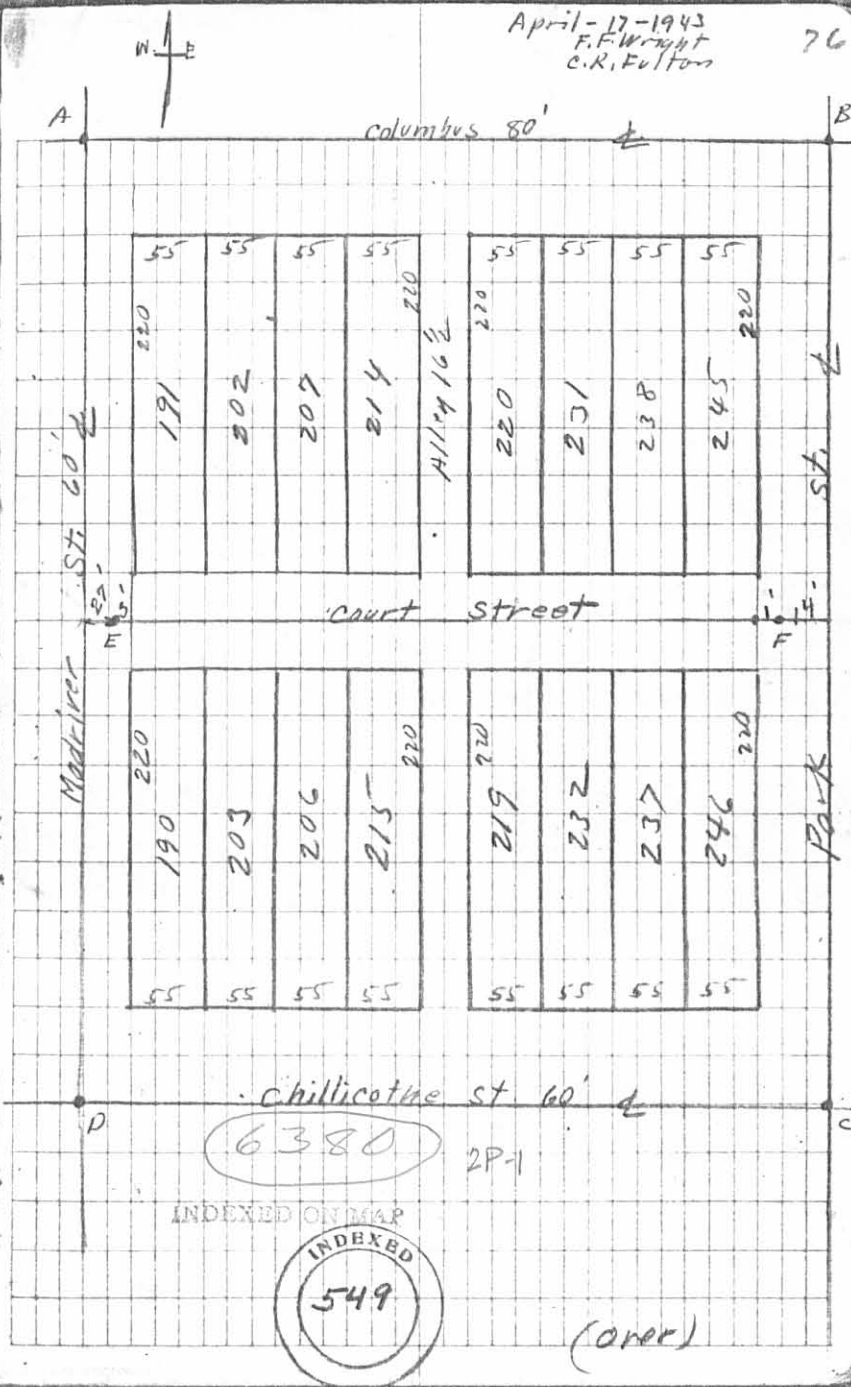 April-17-1943
F.F. Wright
C.R. Fulton
76
W E
A
Columbus 80' ℄
B
55 55 55 55
55 55 55 55
220
220
220
220
191
202
207
214
Alley 16 ½
220
231
238
245
Madriver St. 60' ℄
Park St. ℄
27' 3'
E
Court Street
1' 14'
F
220
220
220
220
190
203
206
215
219
232
237
246
55 55 55 55
55 55 55 55
D
Chillicothe St 60' ℄
C
6380
2P-1
INDEXED ON MAP
INDEXED
549
(over)